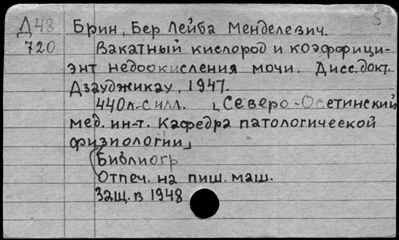 Д48 Брин, Бер Лейба Менделевич. 5
720 Вакатный кислород и коэффици-
энт недоокисления мочи. Дисс. докт.
Дзауджикау, 1947.
440л. с илл. [Северо-Осетинский
мед. ин-т. Кафедра патологической
физиологии]
Библиогр
Отпеч. на пиш. маш.
Защ. в 1948